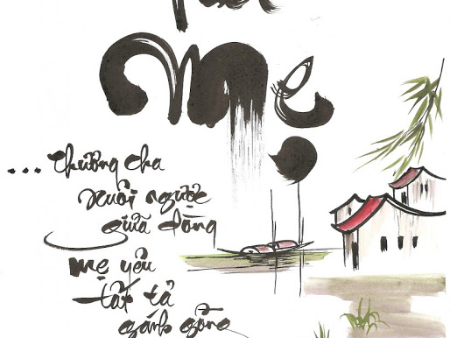 Mẹ
... thương cha
xuôi ngược
giữa dòng
mẹ yêu
tất tả
gánh gồng